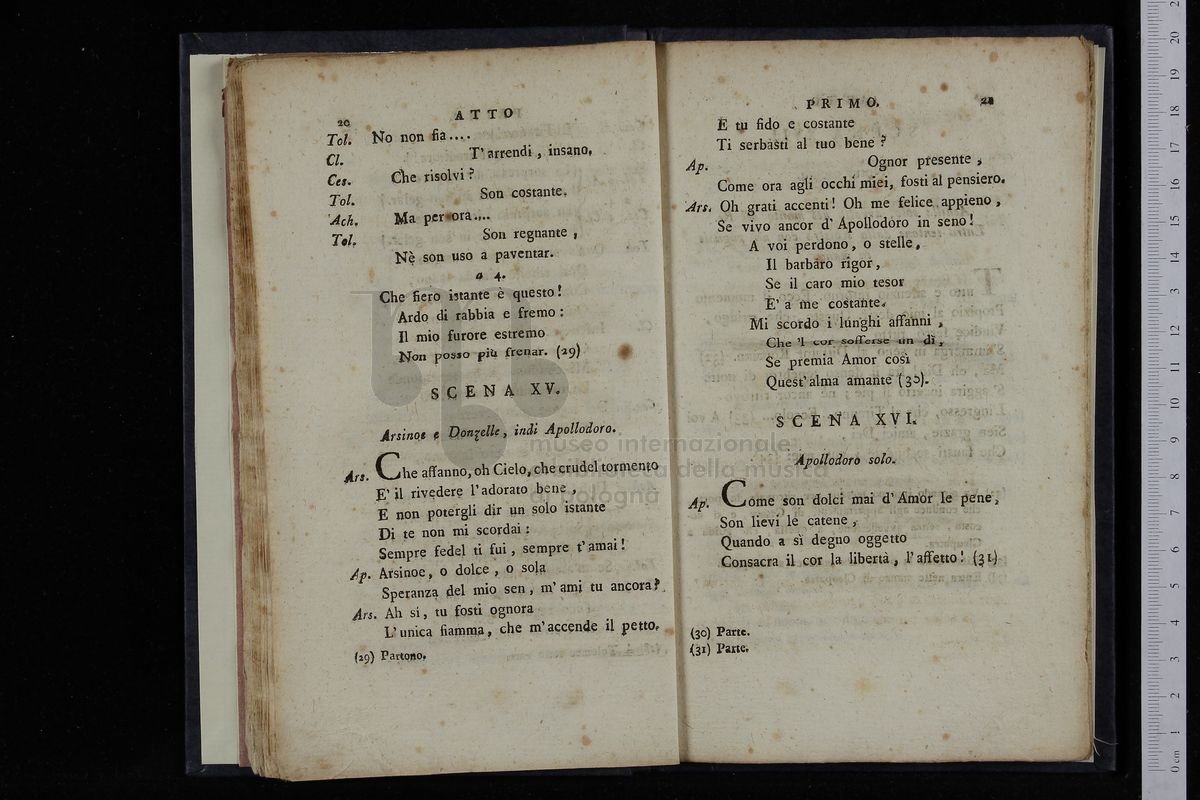 20
ATTO
Tol. No non fia....
Cl. T' arrendi, insano,
Ces. Che risolvi?
Tol. Son costante.
Ach. Ma per ora....
Tol. Son regnante,
Nè son uso a paventar.
a 4.
Che fiero istante è questo!
Ardo di rabbia e fremo:
Il mio furore estremo
Non posso più frenar. (29)
SCENA XV.
Arsinoe e Donzelle, indi Apollodoro.
Ars. Che affanno, oh Cielo, che crudel tormento
E' il rivedere l'adorato bene,
E non potergli dir un solo istante
Di te non mi scordai:
Sempre fedel ti fui, sempre t'amai!
Ap. Arsinoe, o dolce, o sola
Speranza del mio sen, m'ami tu ancora?
Ars. Ah sì, tu fosti ognora
L'unica fiamma, che m'accende il petto.
(29) Partono.
PRIMO.
21
E tu fido e costante
Ti serbasti al tuo bene?
Ap. Ognor presente,
Come ora agli occhi miei, fosti al pensiero.
Ars. Oh grati accenti! Oh me felice appieno,
Se vivo ancor d'Apollodoro in seno!
A voi perdono, o stelle,
Il barbaro rigor,
Se il caro mio tesor
E' a me costante.
Mi scordo i lunghi affanni,
Che 'l cor sofferse un dì,
Se premia Amor così
Quest'alma amante (30).
SCENA XVI.
Apollodoro solo.
Ap. Come son dolci mai d'Amor le pene,
Son lievi le catene,
Quando a sì degno oggetto
Consacra il cor la libertà, l'affetto! (31)
(30) Parte.
(31) Parte.
museo internazionale
e biblioteca della musica
di bologna